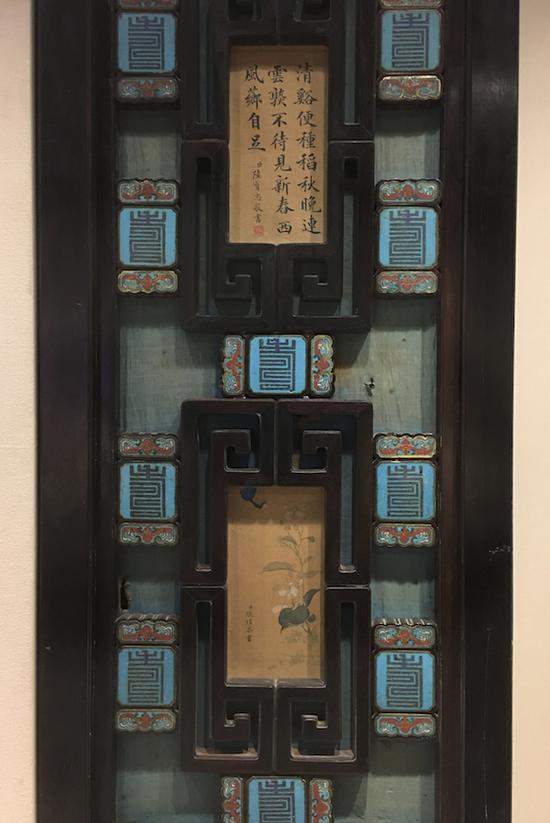 清谿便種稻秋晚連
雲熟不待見新春西
風薌自足
臣陸寶忠敬書